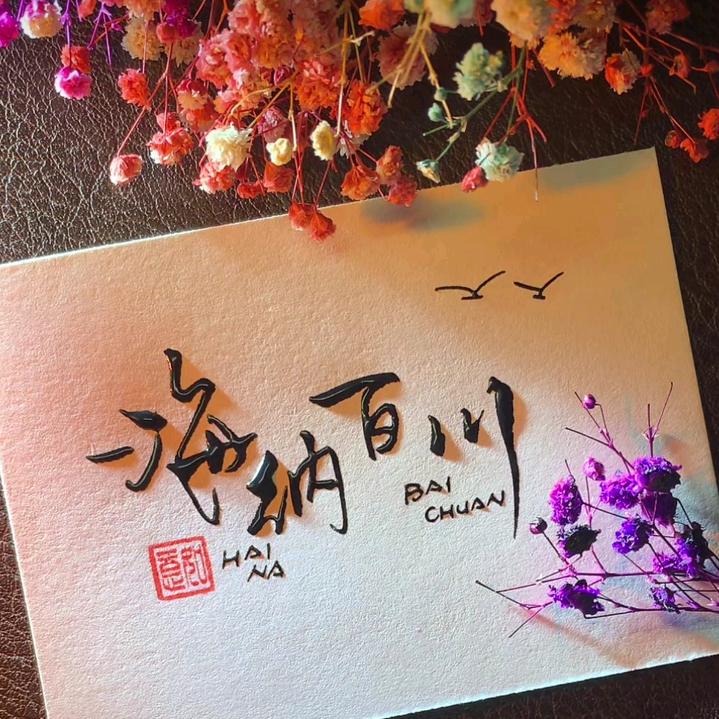 海纳百川
HAI
NA
BAI
CHUAN